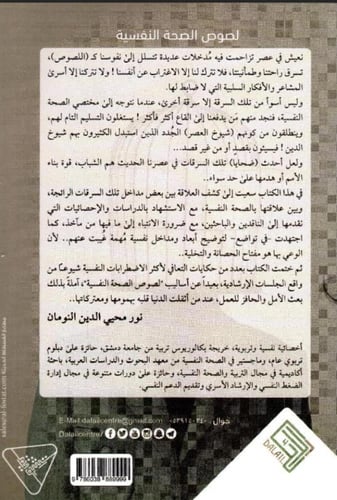 لصوص الصحة النفسية
نعيش في عصر تزاحمت فيه مُدخلات عديدة تتسلل إلى نفوسنا كـ (اللصوص)،
تسرق راحتنا وطمأنينتنا، فلا تترك لنا إلا الاغتراب عن أنفسنا ! ولا تتركنا إلا أسرى
المشاعر والأفكار السلبية التي لا ضابط لها.
وليس أسوأ من تلك السرقة إلا سرقة أخرى، عندما نتوجه إلى مختصي الصحة
النفسية، فنجد منهم مَن يدفعنا إلى القاع أكثر فأكثر ! يستغلون التسليم التام لهم،
وينطلقون من كونهم (شيوخ العصر) الجُدد الذين استبدل الكثيرون بهم شيوخ
الدين ! فيسيئون بقصدٍ أو من غير قصد...
ولعل أحدث (ضحايا) تلك السرقات في عصرنا الحديث هم الشباب، قوة بناء
الأمم أو هدمها على حد سواء..
في هذا الكتاب سعيت إلى كشف العلاقة بين بعض مداخل تلك السرقات الرائجة،
وبين علاقتها بالصحة النفسية، مع الاستشهاد بالدراسات والإحصائيات التي
نقدمها إلى الناقدين والباحثين، مع ضرورة الانتباه إلى ما فيها من مآخذ، كما
اجتهدت -في تواضع- لتوضيح أبعاد ومداخل نفسية مُهمة غُيبت عنهم.. لأن
الوعي بها هو مفتاح الحصانة والتخلية..
ثم ختمت الكتاب بعدد من حكايات التعافي لأكثر الاضطرابات النفسية شيوعًا من
واقع الجلسات الإرشادية، بعيدًا عن أساليب "لصوص الصحة النفسية"، آملةً بذلك
بعث الأمل والحافز للعمل، عند من أثقلت الدنيا قلبه بهمومها ومعتركاتها..
نور محيي الدين النومان
أخصائية نفسية وتربوية، خريجة بكالوريوس تربية من جامعة دمشق، حائزة على دبلوم
تربوي عام، وماجستير في الصحة النفسية من معهد البحوث والدراسات العربية، باحثة
أكاديمية في مجال التربية والصحة النفسية، وحائزة على دورات متنوعة في مجال إدارة
الضغط النفسي والإرشاد الأسري وتقديم الدعم النفسي.
E-Mail:dalailcentre@gmail.com
جوال
Dalailcentre/
DALAIL
9 786038 889999